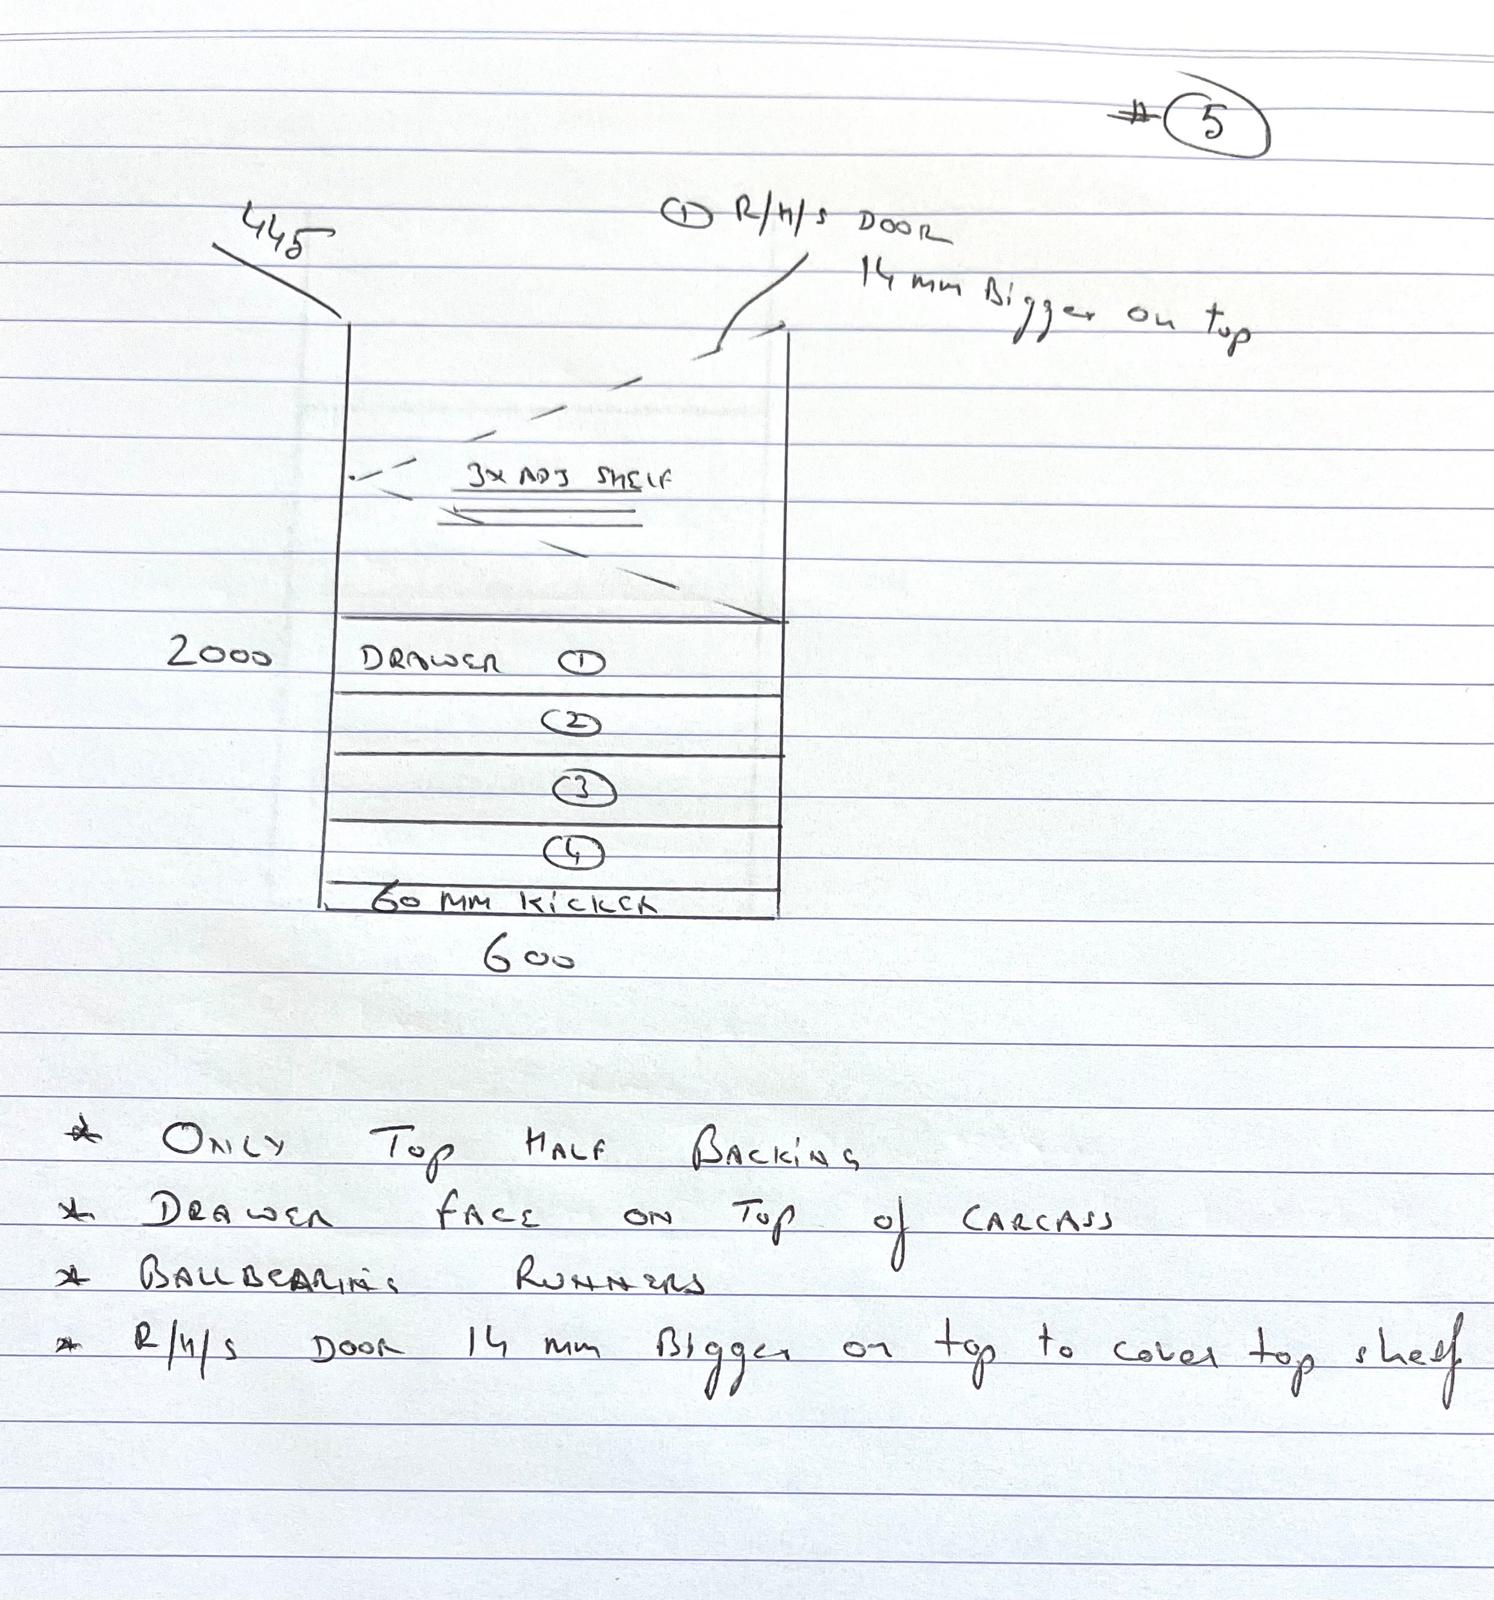 # 5
445
① R/H/S DOOR
14 mm Bigger on top
3x ADJ SHELF
2000
DRAWER ①
②
③
④
60 MM KICKER
600
* ONLY TOP HALF BACKING
* DRAWER FACE ON TOP of CARCASS
* BALLBEARING RUNNERS
* R/H/S DOOR 14 mm Bigger on top to cover top shelf